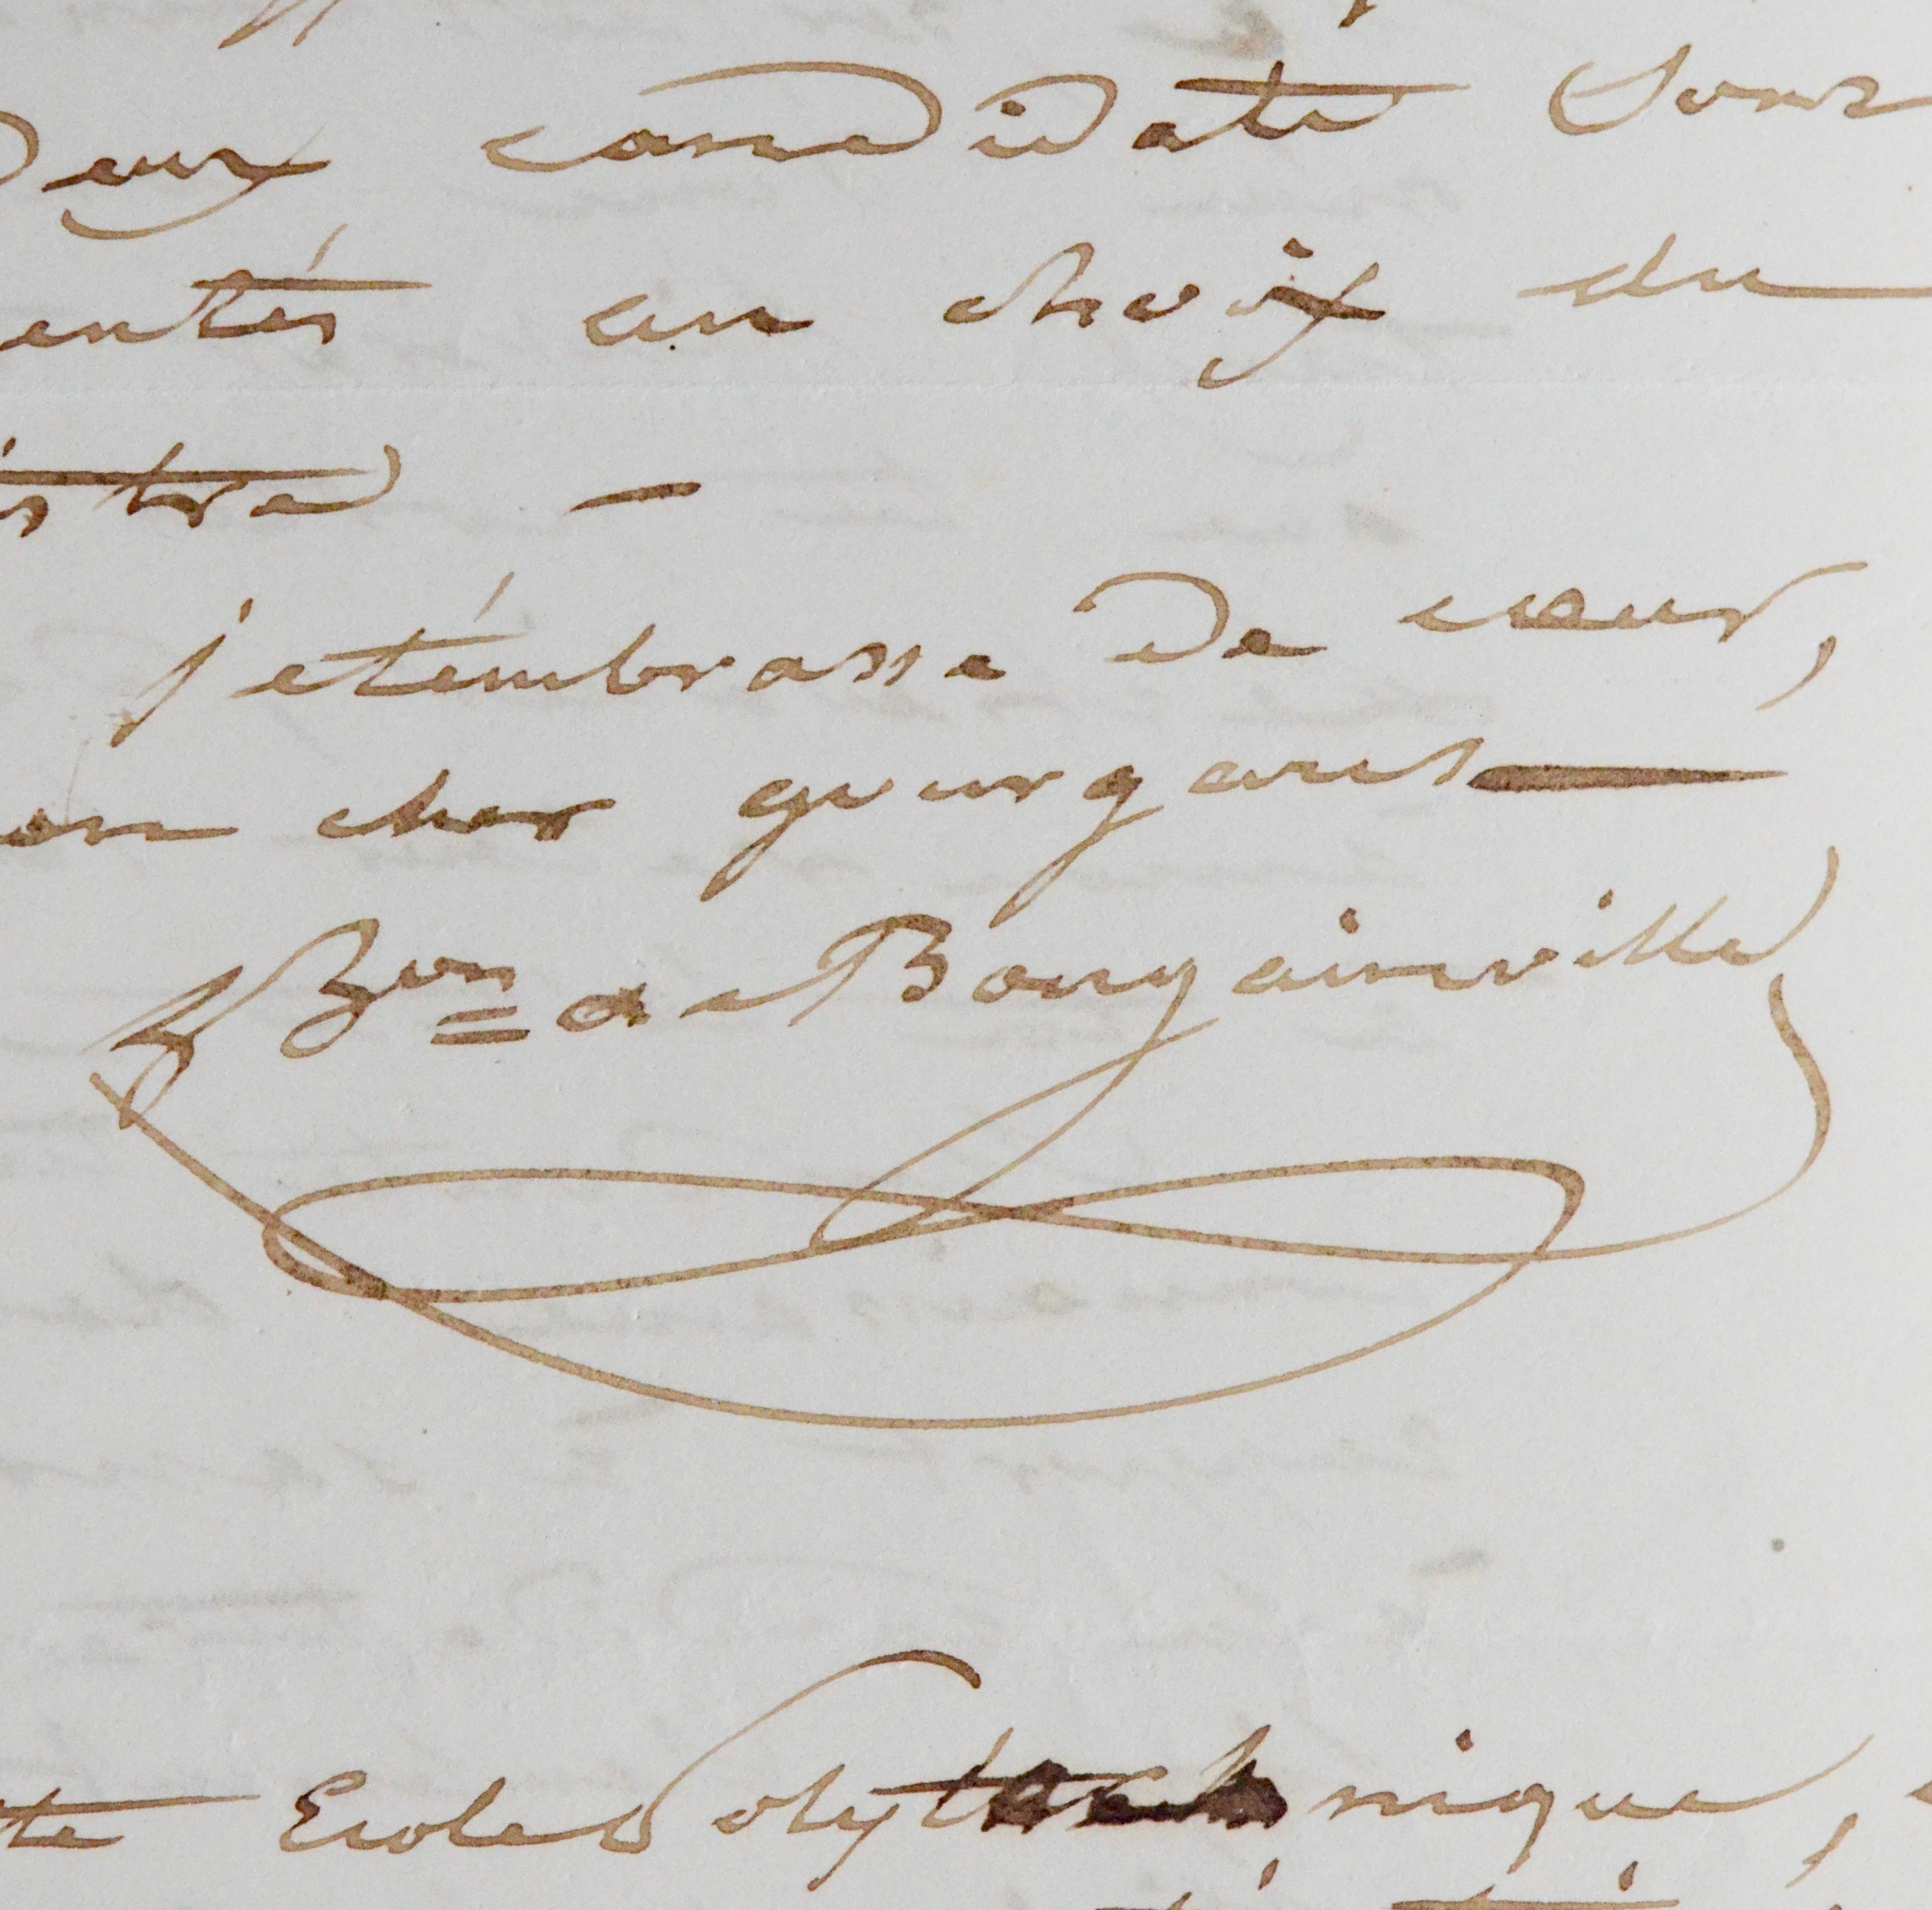 Deux candidats sont
entés au choix du
istre —
je t'embrasse de cœur,
on cher gourgaud
Bon de Bougainville
te Ecole Polytechnique,